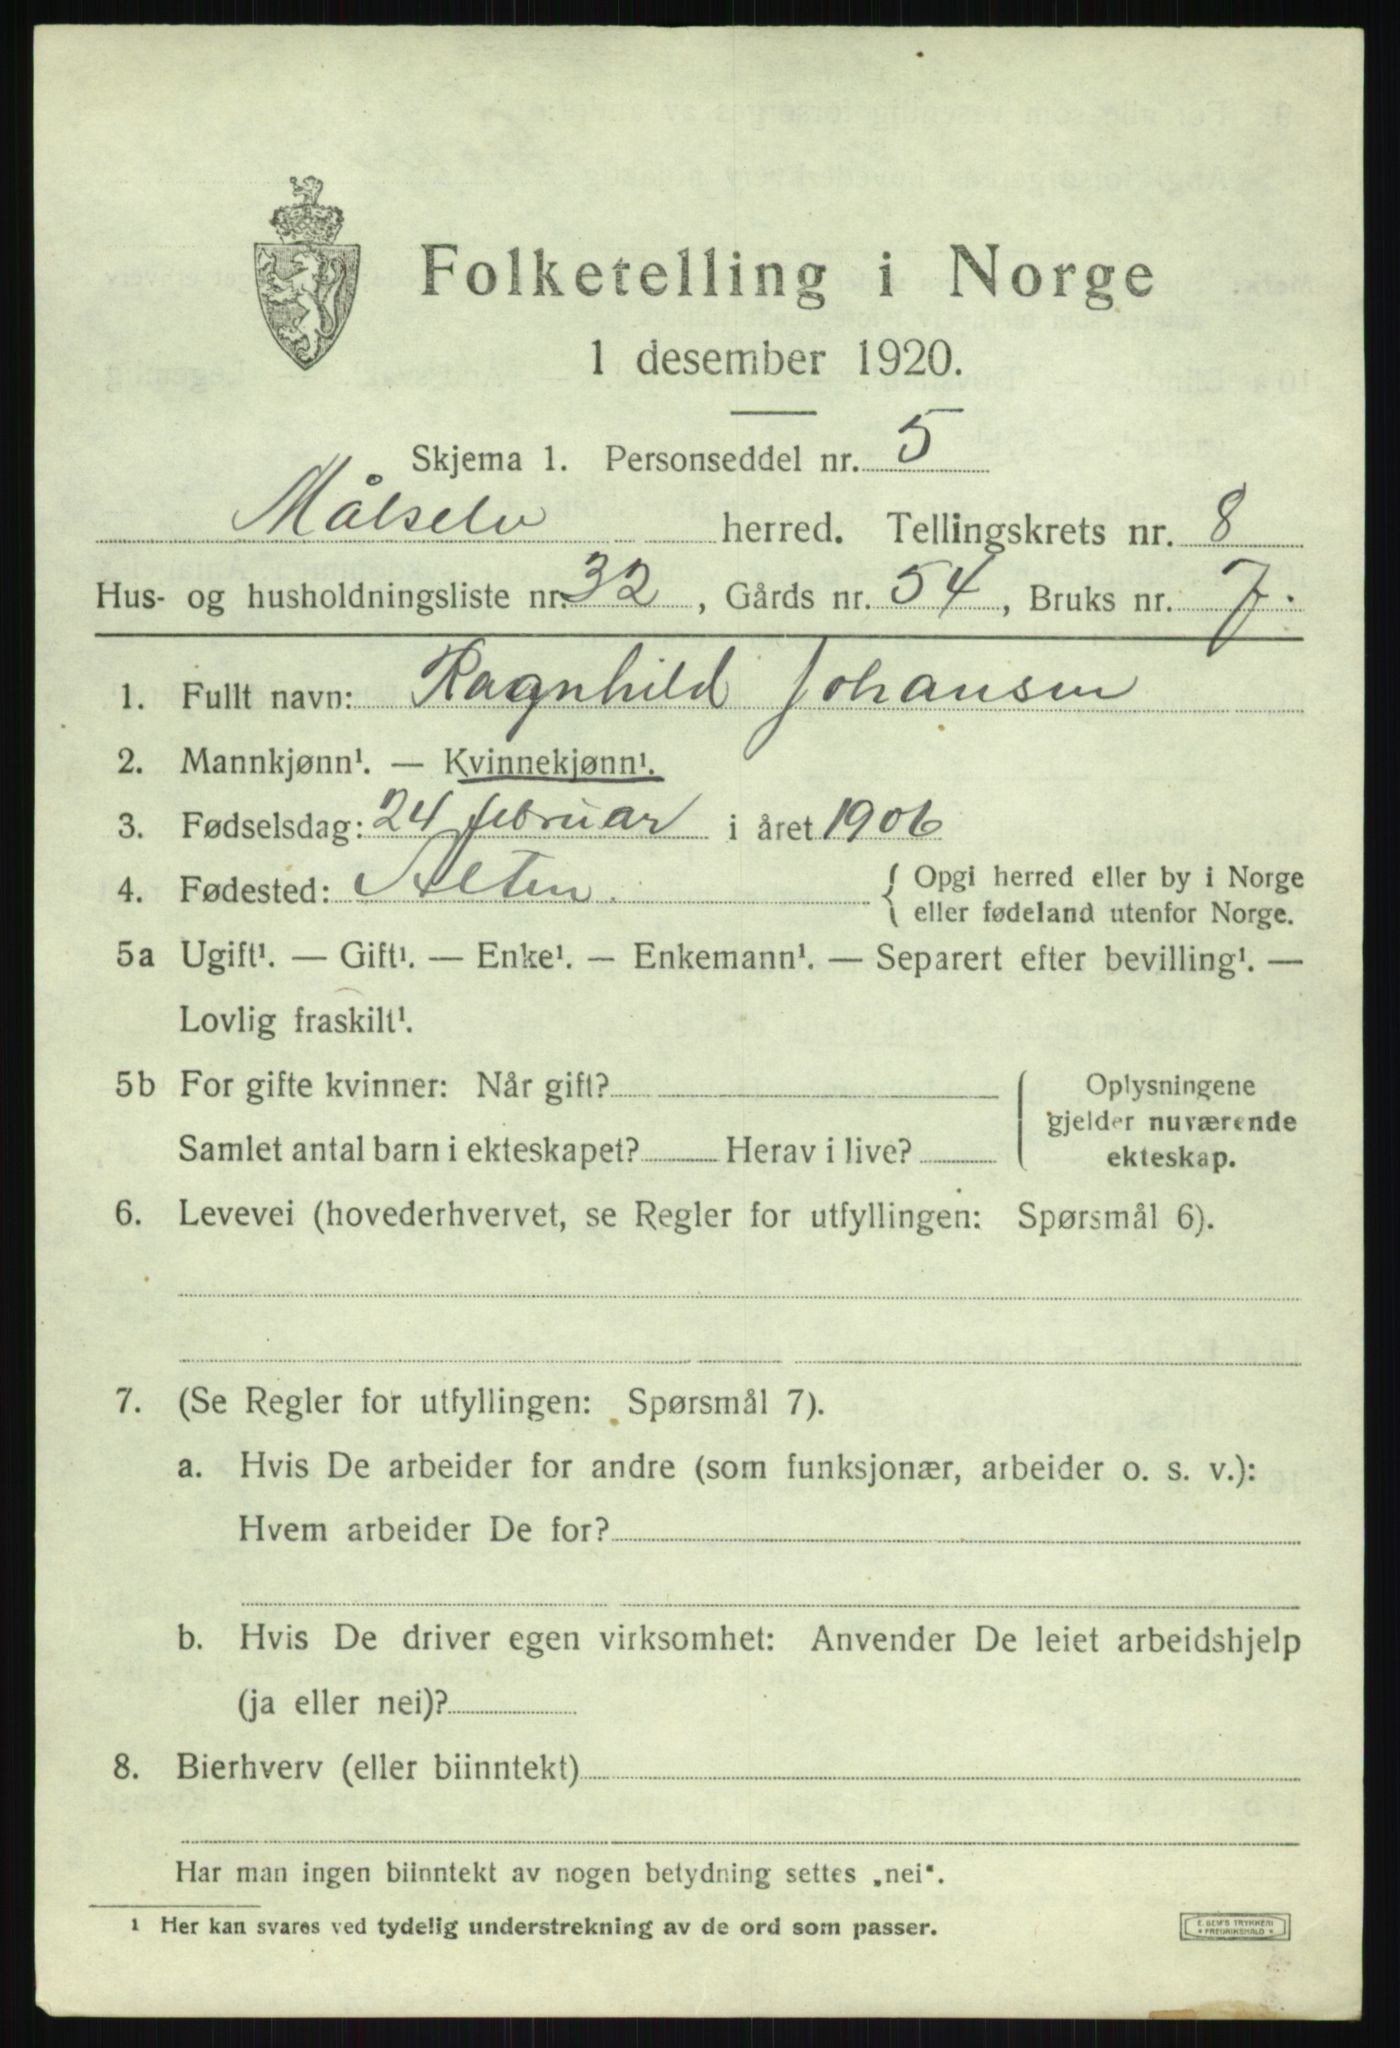 Folketelling i Norge
1 desember 1920.
Skjema 1. Personseddel nr. 5
Målselv herred. Tellingskrets nr. 8
Hus- og husholdningsliste nr. 32, Gårds nr. 54, Bruks nr. 7.
1. Fullt navn: Ragnhild Johansen
2. Mannkjønn¹. — Kvinnekjønn¹.
3. Fødselsdag: 24 februar i året 1906
4. Fødested: Alten. { Opgi herred eller by i Norge
eller fødeland utenfor Norge.
5a Ugift¹. — Gift¹. — Enke¹. — Enkemann¹. — Separert efter bevilling¹. —
Lovlig fraskilt¹.
5b For gifte kvinner: Når gift?
Samlet antal barn i ekteskapet? Herav i live?
Oplysningene
gjelder nuværende
ekteskap.
6. Levevei (hovederhvervet, se Regler for utfyllingen: Spørsmål 6).
7. (Se Regler for utfyllingen: Spørsmål 7).
a. Hvis De arbeider for andre (som funksjonær, arbeider o. s. v.):
Hvem arbeider De for?
b. Hvis De driver egen virksomhet: Anvender De leiet arbeidshjelp
(ja eller nei)?
8. Bierhverv (eller biinntekt)
Har man ingen biinntekt av nogen betydning settes „nei“.
¹ Her kan svares ved tydelig understrekning av de ord som passer.
E. SEM'S TRYKKERI
* FREDRIKSHALD *